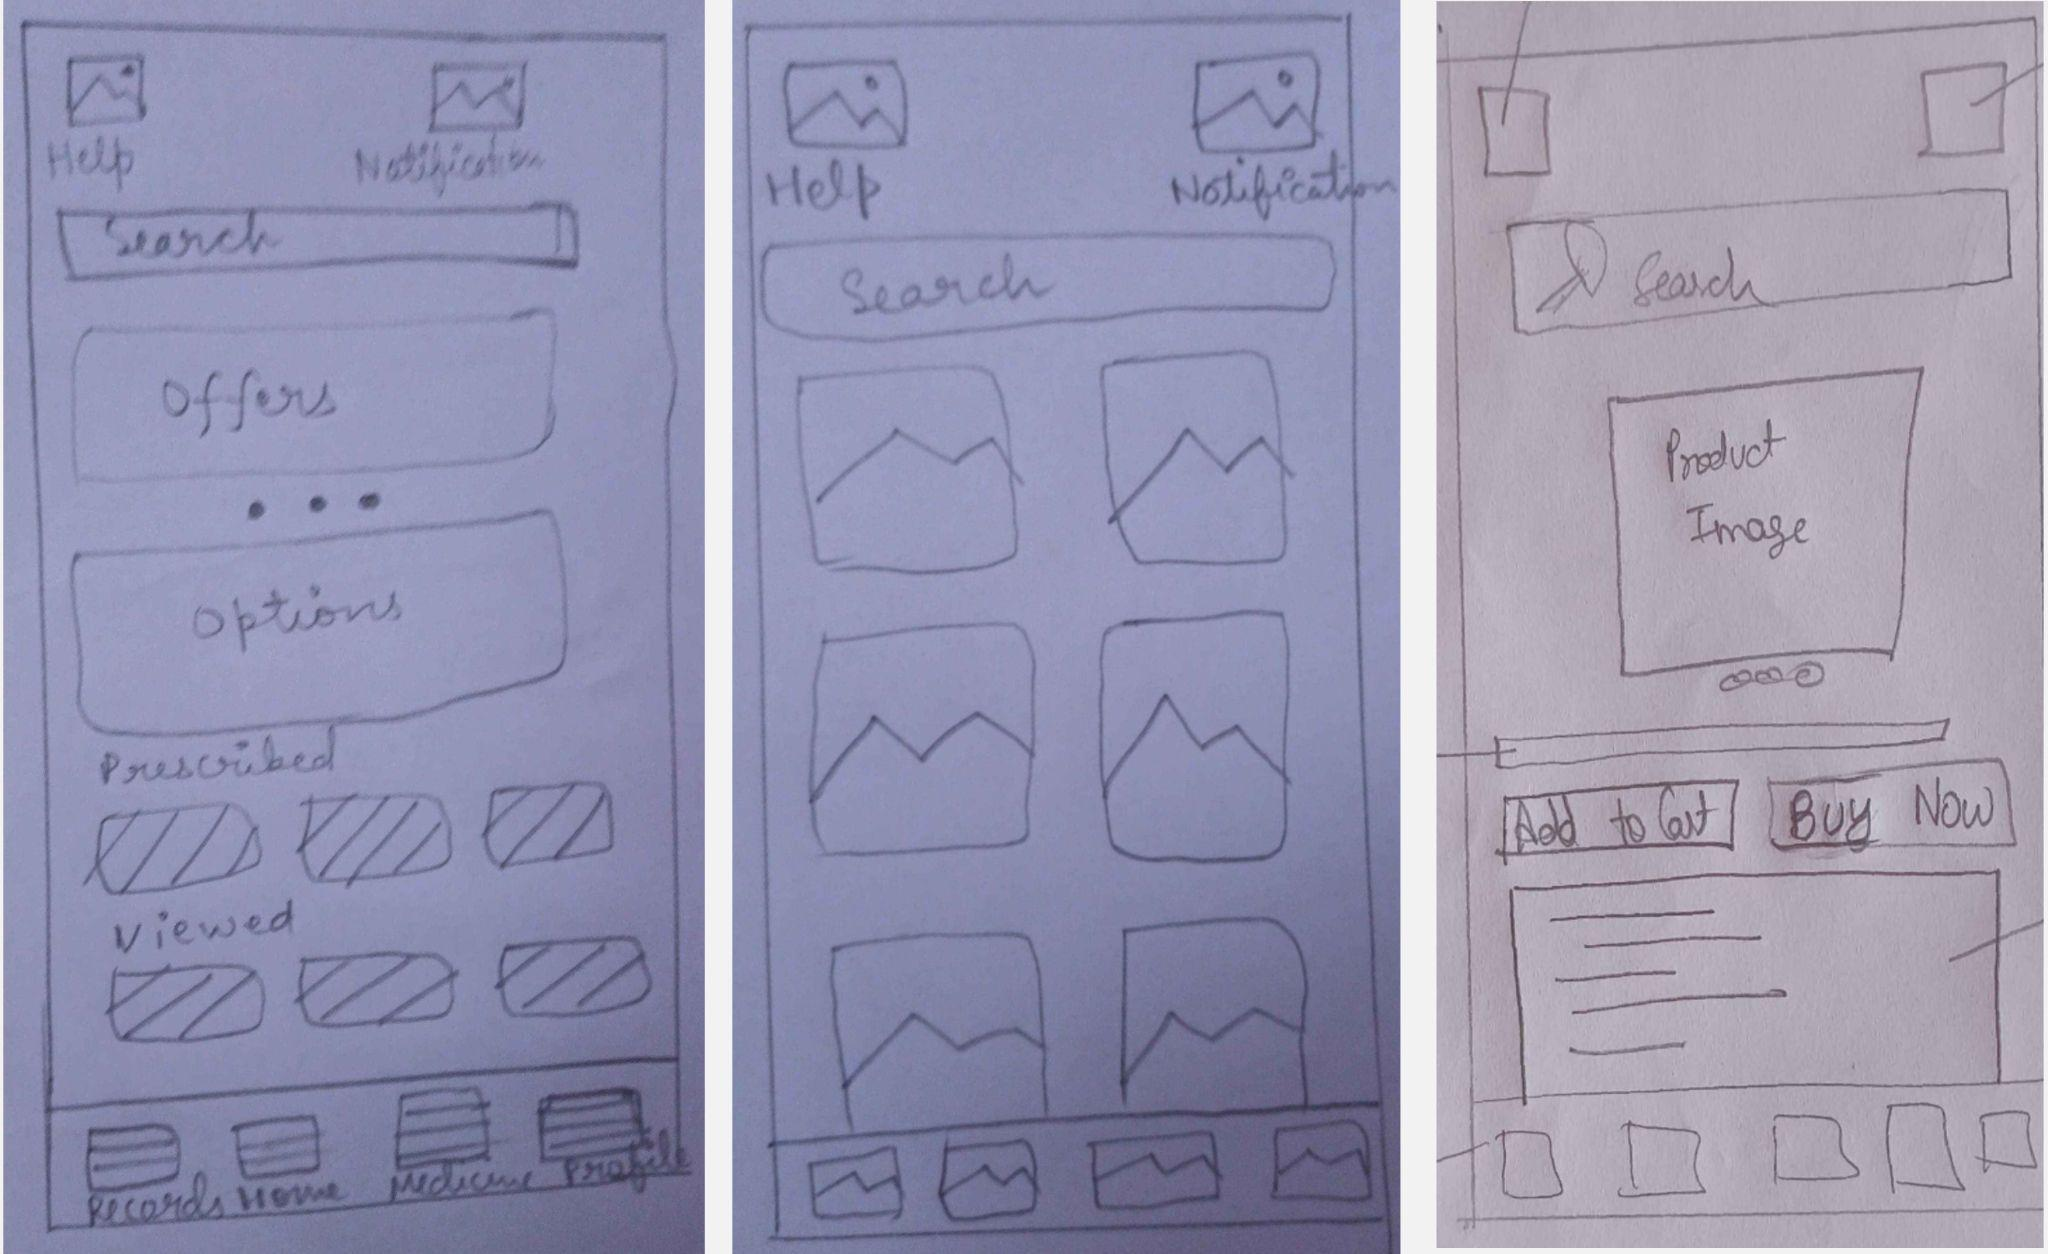 Help
Notification
Search
Offers
Options
Prescribed
Viewed
Records Home Medicine Profile
Help
Notification
Search
Search
Product
Image
Add to Cart
Buy Now